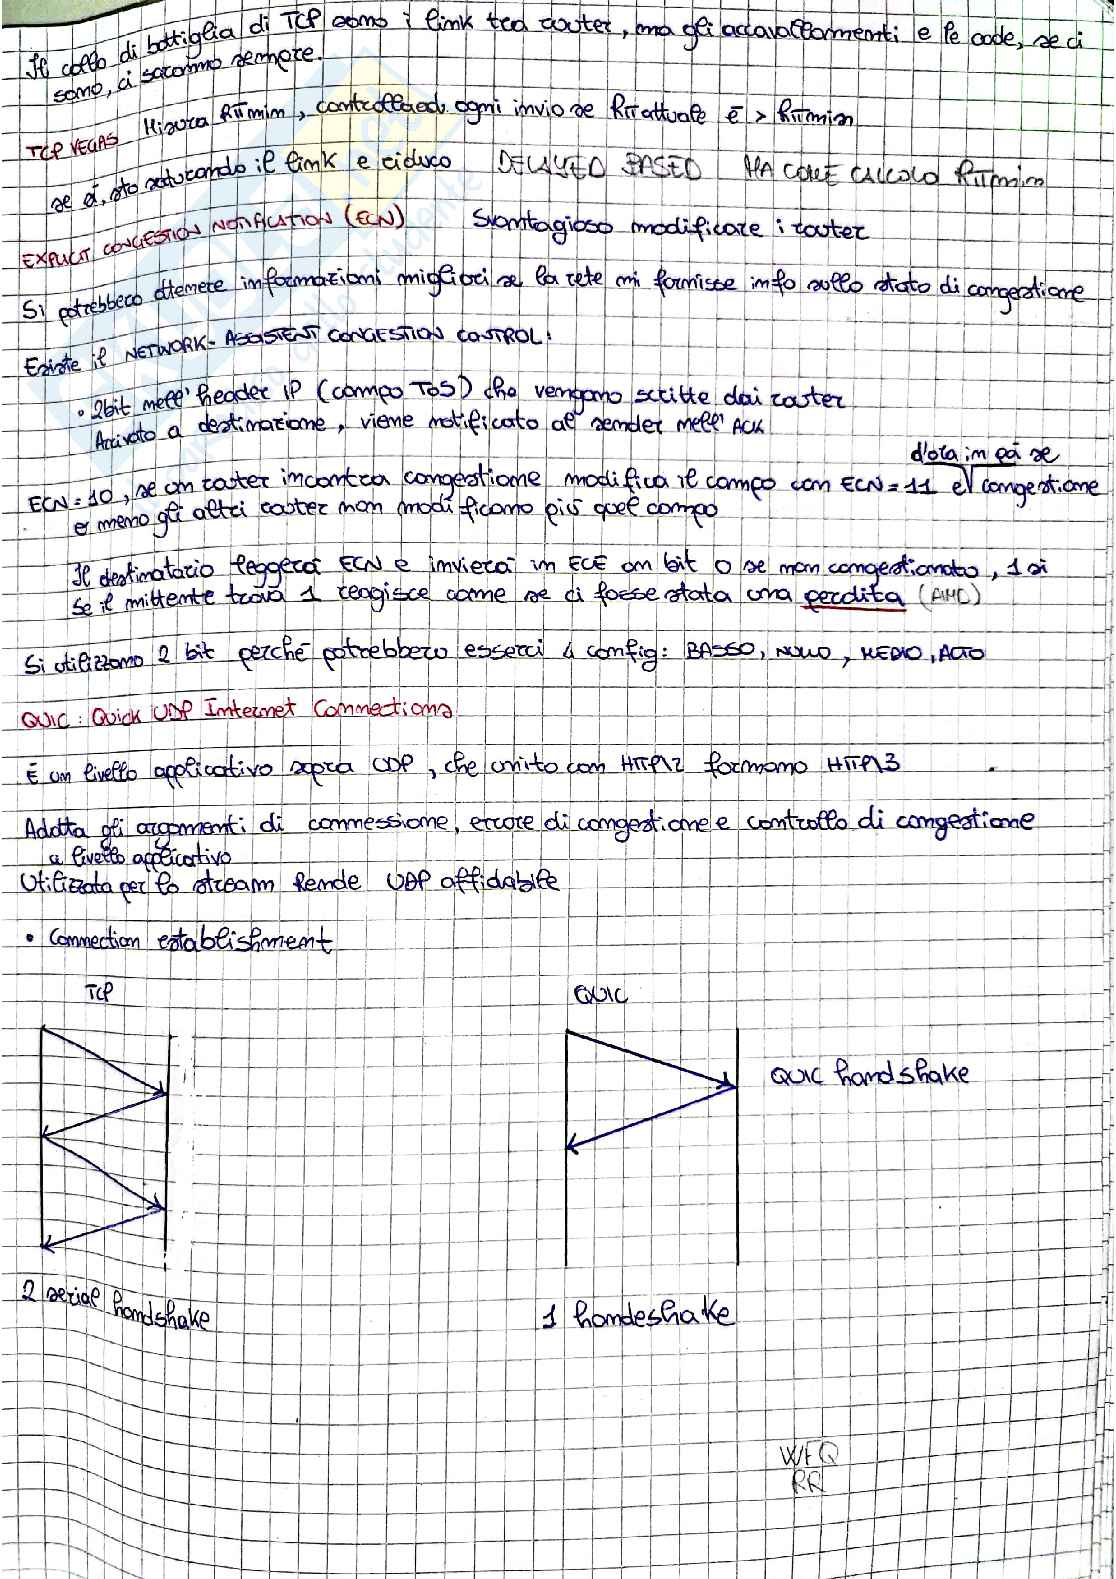 Il collo di bottiglia di TCP sono i link tra router, ma gli accavallamenti e le code, se ci
sono, ci saranno sempre.
TCP VEGAS Misura RTTmin, controlla ad ogni invio se RTTattuale è > RTTmin
se sì, sto saturando il link e riduco DELAYED BASED MA COME CALCOLO RTTmin
EXPLICIT CONGESTION NOTIFICATION (ECN) Svantagioso modificare i router
Si potrebbero ottenere informazioni migliori se la rete mi fornisse info sullo stato di congestione
Esiste il NETWORK-ASSISTENT CONGESTION CONTROL:
• 2bit nell'header IP (campo TOS) che vengono scritte dai router
Arrivato a destinazione, viene notificato al sender nell'ACK
d'ora in poi se
ECN=10, se un router incontra congestione modifica il campo con ECN=11 e congestione
o meno gli altri router non modificano più quel campo
Il destinatario leggerà ECN e invierà in ECE un bit 0 se non congestionato, 1 si
Se il mittente trova 1 reagisce come se ci fosse stata una perdita (AIMD)
Si utilizzano 2 bit perché potrebbero esserci 4 config: BASSO, NULLO, MEDIO, ALTO
QUIC: Quick UDP Internet Connections
È un livello applicativo sopra UDP, che unito con HTTP\2 formano HTTP\3
Adotta gli argomenti di connessione, errore di congestione e controllo di congestione
a livello applicativo
Utilizzata per lo stream Rende UDP affidabile
• Connection establishment
TCP QUIC
QUIC handshake
2 serial handshake 1 handeshake
WFQ
RR